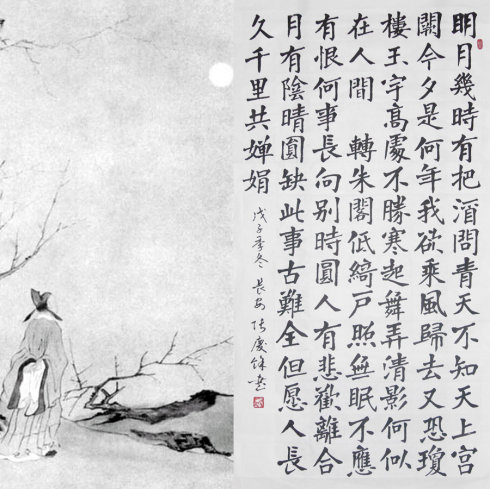 明月幾時有把酒問青天不知天上宮
闕今夕是何年我欲乘風歸去又恐瓊
樓玉宇高處不勝寒起舞弄清影何似
在人間 轉朱閣低綺戶照無眠不應
有恨何事長向別時圓人有悲歡離合
月有陰晴圓缺此事古難全但愿人長
久千里共嬋娟
戊子季冬 長安